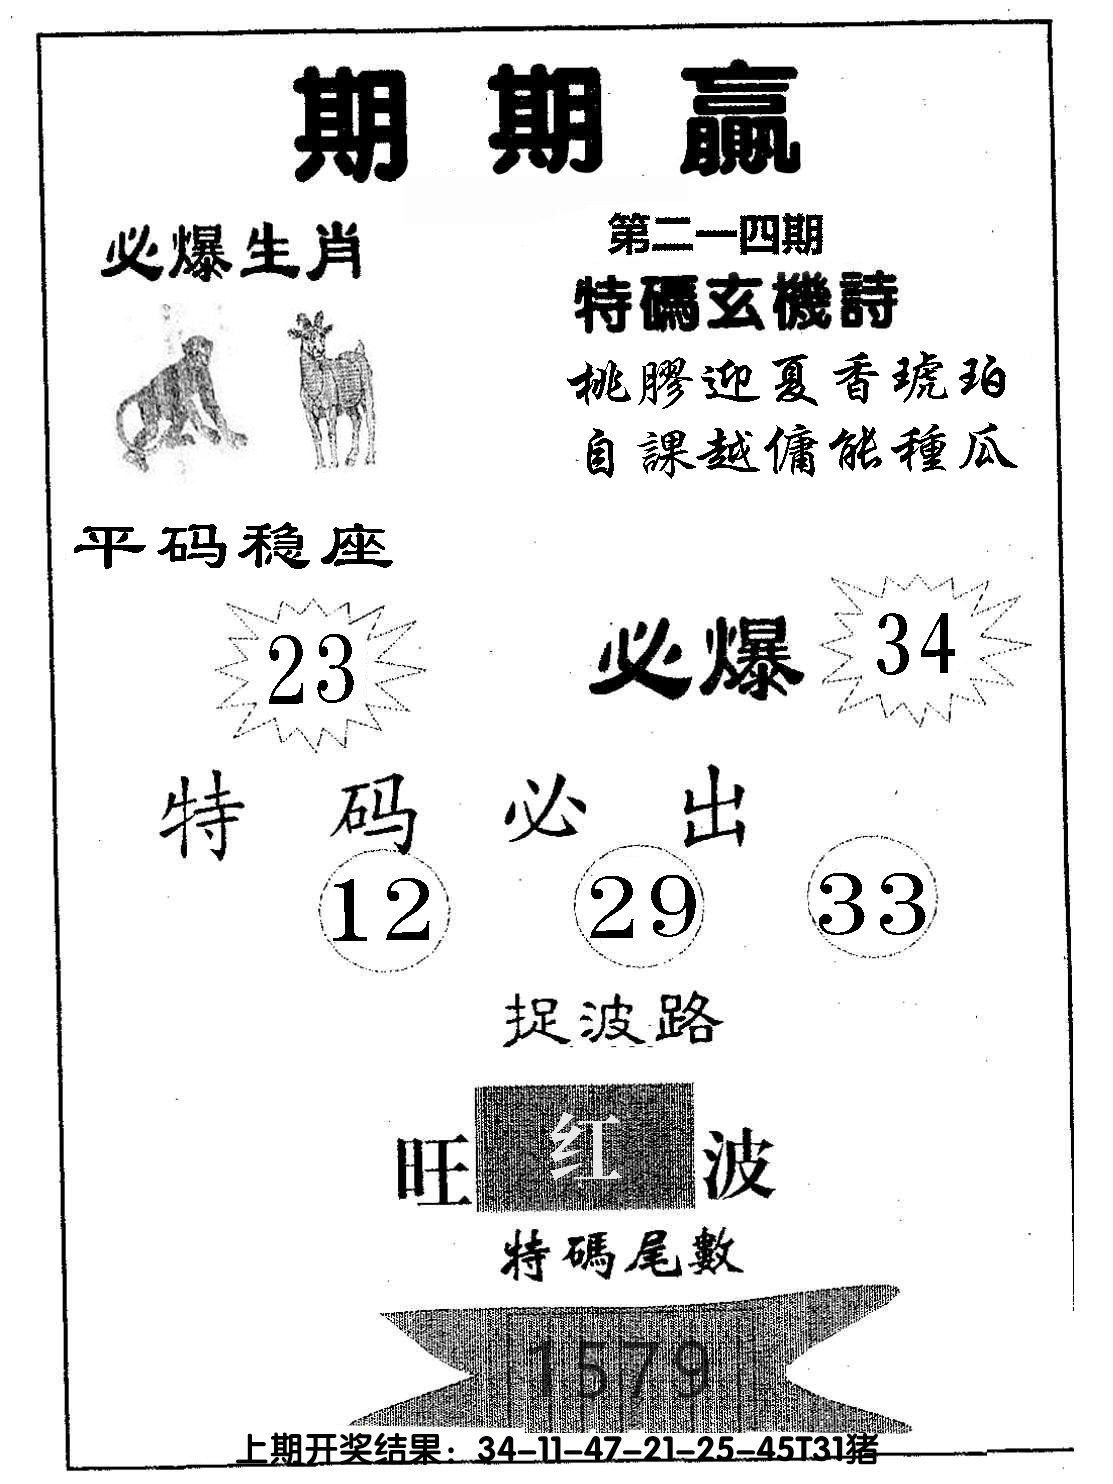 期期贏
必爆生肖
第二一四期
特碼玄機詩
桃膠迎夏香琥珀
自課越傭能種瓜
平码稳座
23
必爆
34
特码必出
12 29 33
捉波路
旺红波
特碼尾數
1579
上期开奖结果：34-11-47-21-25-45T31猪